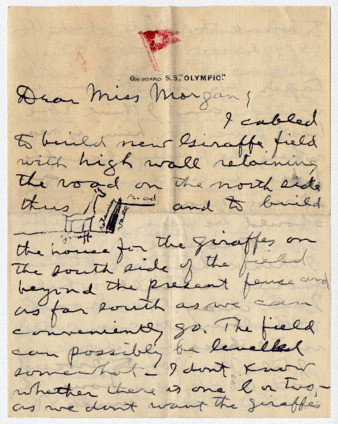 ON BOARD S.S. "OLYMPIC."
Dear Miss Morgan,
I cabled
to build new Giraffe field
with high wall retaining
the road on the north side
thus
road
and to build
giraffe
the house for the giraffes on
the south side of the field
beyond the present fense and
as far south as we can
conveniently go. The field
can possibly be levelled
somewhat – I dont know
whether there is one or two, –
as we dont want the giraffes